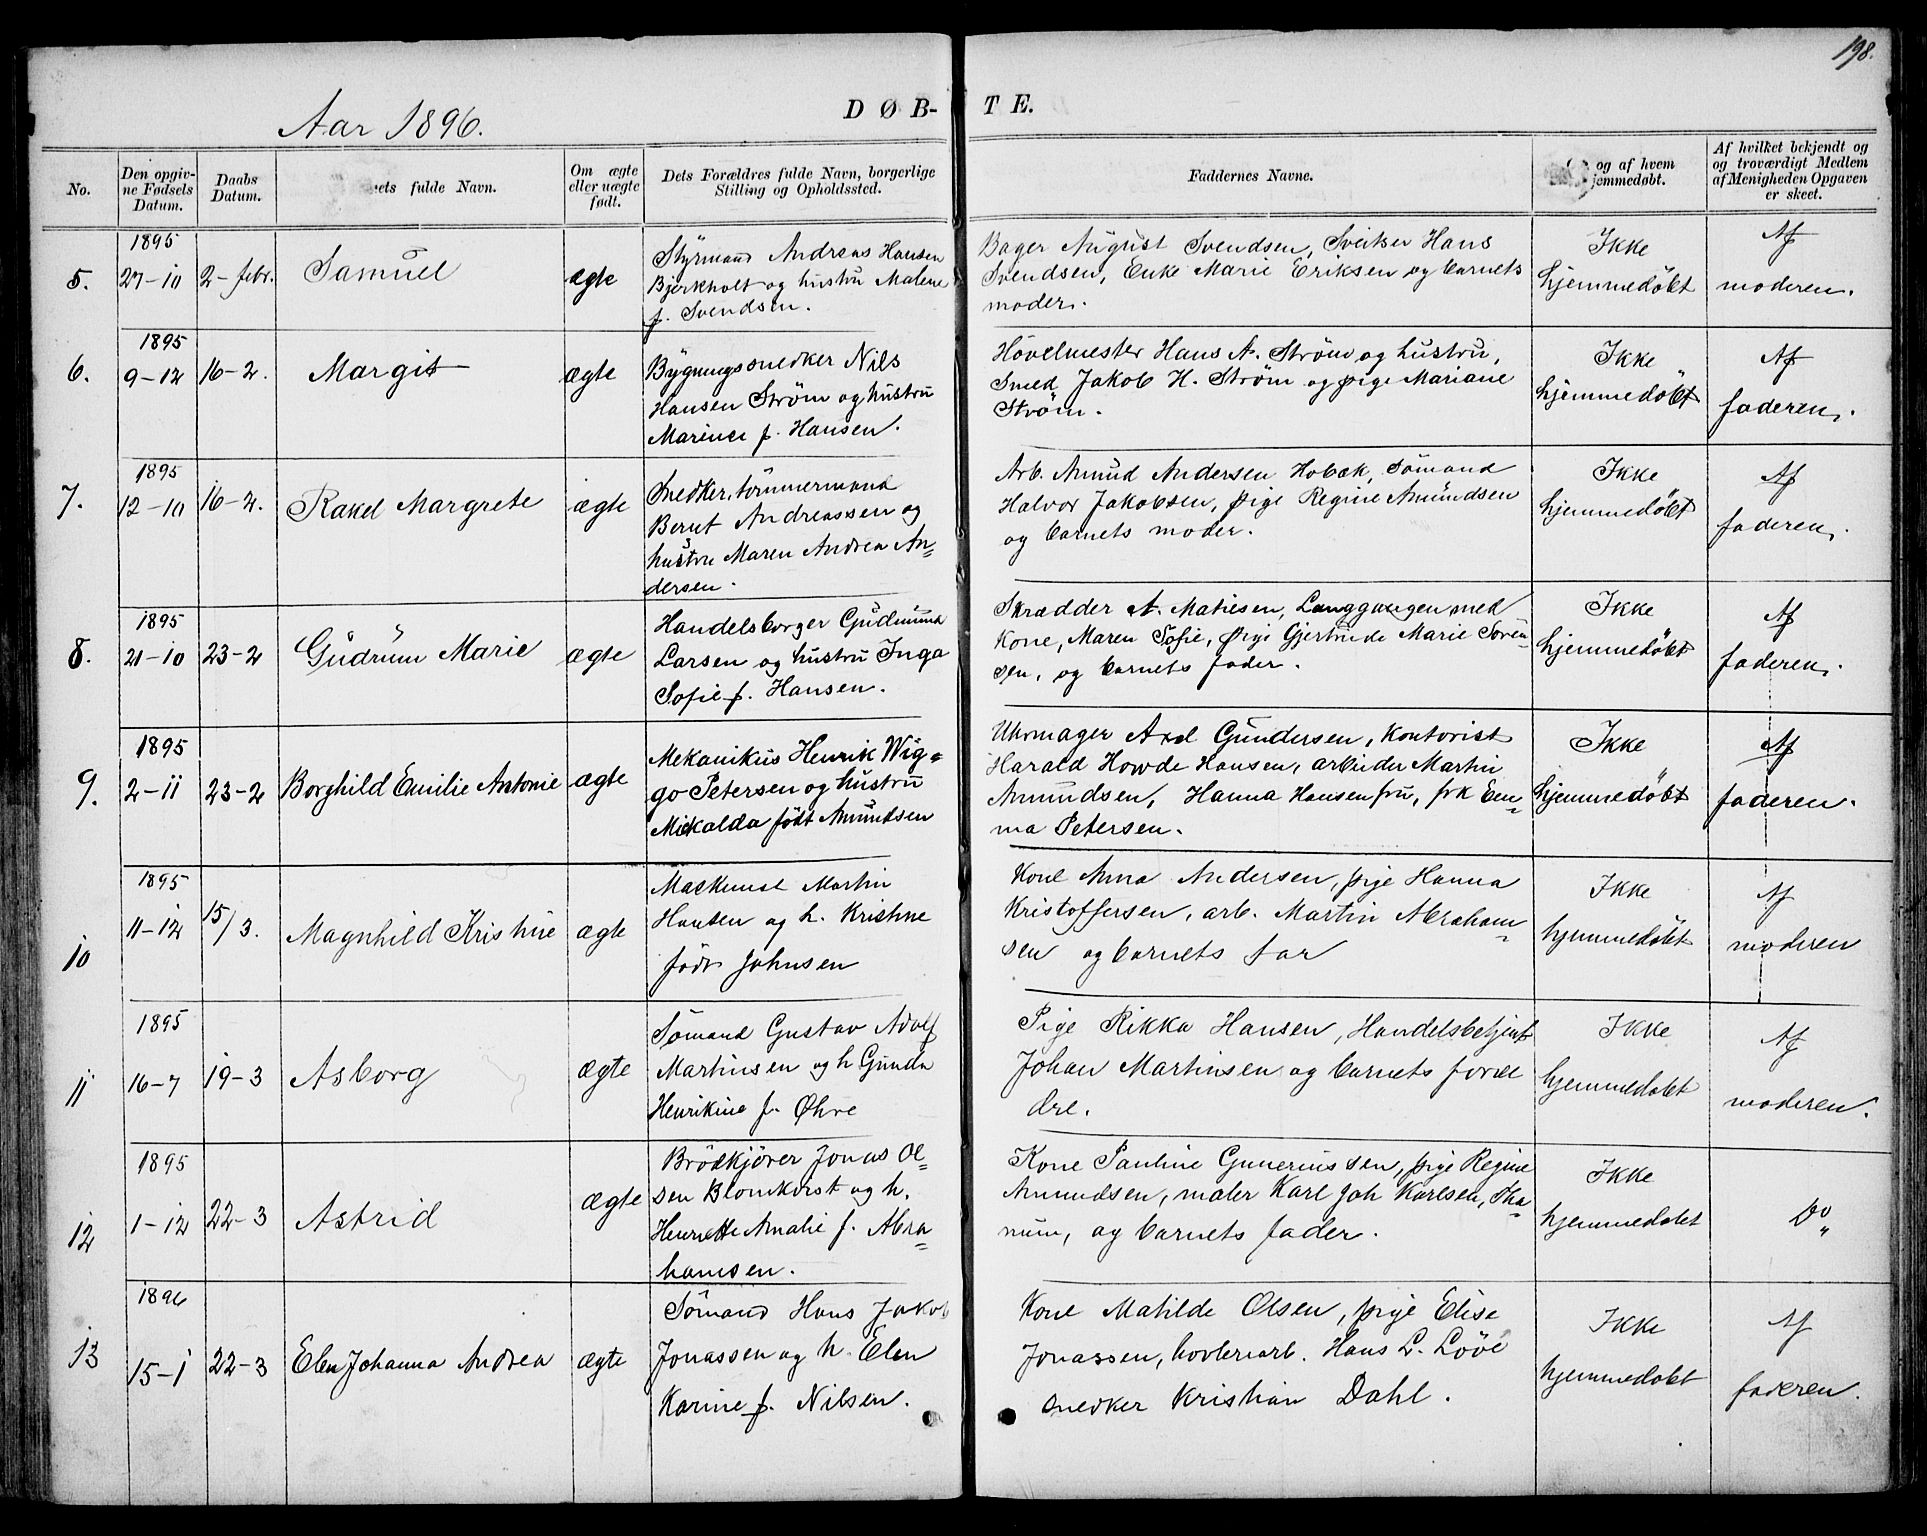 198.
Aar 1896.
DØB-TE.
No.
Den opgiv-
ne Fødsels
Datum.
Daabs
Datum.
ets fulde Navn.
Om ægte
eller uægte
født.
Dets Forældres fulde Navn, borgerlige
Stilling og Opholdssted.
Faddernes Navne.
og af hvem
jemmedøbt.
Af hvilket bekjendt og
og troværdigt Medlem
af Menigheden Opgaven
er skeet.
5.
1895
27-10
2-febr.
Samuel
ægte
Styrmand Andreas Hansen
Bjerkholt og hustru Malene
f. Svendsen.
Bager August Svendsen, Sveitser Hans
Svendsen, Enke Marie Eriksen og barnets
moder.
Ikke
hjemmedøbt
Af
moderen.
6.
1895
9-12
16-2.
Margit
ægte
Bygningssnedker Nils
Hansen Strøm og hustru
Marine f. Hansen.
Høvelmester Hans A. Strøm og hustru,
Smed Jakob H. Strøm og pige Mariane
Strøm.
Ikke
hjemmedøbt
Af
faderen.
7.
1895
12-10
16-2.
Rakel Margrete
ægte
Snedker, tømmermand
Bernt Andreassen og
hustru Maren Andrea An=
dersen.
Arb. Amund Andersen Hobæk, Sømand
Halvor Jakobsen, Pige Regine Amundsen
og barnets moder.
Ikke
hjemmedøbt
Af
faderen.
8.
1895
21-10
23-2
Gudrun Marie
ægte
Handelsborger Gudmund
Larsen og hustru Inga
Sofie f. Hansen.
Skrædder A. Matiesen, Langgangen med
Kone, Maren Sofie, Pige Gjertrude Marie Sören=
sen, og barnets fader.
Ikke
hjemmedøbt
Af
faderen.
9.
1895
2-11
23-2
Borghild Emilie Antonie
ægte
Mekanikus Henrik Wig=
go Petersen og hustru
Mikalda født Amundsen
Uhrmager Axel Gundersen, Kontorist
Harald Howde Hansen, arbeider Martin
Amundsen, Hanna Hansen fru, frk Em=
ma Petersen.
Ikke
hjemmedøbt
Af
faderen.
10
1895
11-12
15/3.
Magnhild Kristine
ægte
Maskinist Martin
Hansen og h. Kristine
født Johnsen
Kone Anna Andersen, pige Hanna
Kristoffersen, arb. Martin Abraham=
sen og barnets far
Ikke
hjemmedøbt
Af
moderen
11
1895
16-7
19-3
Asborg
ægte
Sømand Gustav Adolf
Martinsen og h Gunda
Henrikine f. Øhre
Pige Rikka Hansen, Handelsbetjent
Johan Martinsen og barnets foræl
dre.
Ikke
hjemmedøbt
Af
moderen.
12
1895
1-12
22-3
Astrid
ægte
Brødkjører Jonas Ol=
sen Blomkvist og h.
Henriette Amalie f. Abra=
hamsen.
Kone Pauline Gunerius sen, pige Regine
Amundsen, maler Karl Joh Karlsen, Tha=
num, og barnets fader.
Ikke
hjemmedøbt
Do
13
1896
15-1
22-3
Elen Johanna Andrea
ægte
Sømand Hans Jakob
Jonassen og h. Elen
Karine f. Nilsen.
Kone Matilde Olsen, pige Elise
Jonassen, hovleriarb. Hans L. Løve
snedker Kristian Dahl.
Ikke
hjemmedøbt
Af
faderen.